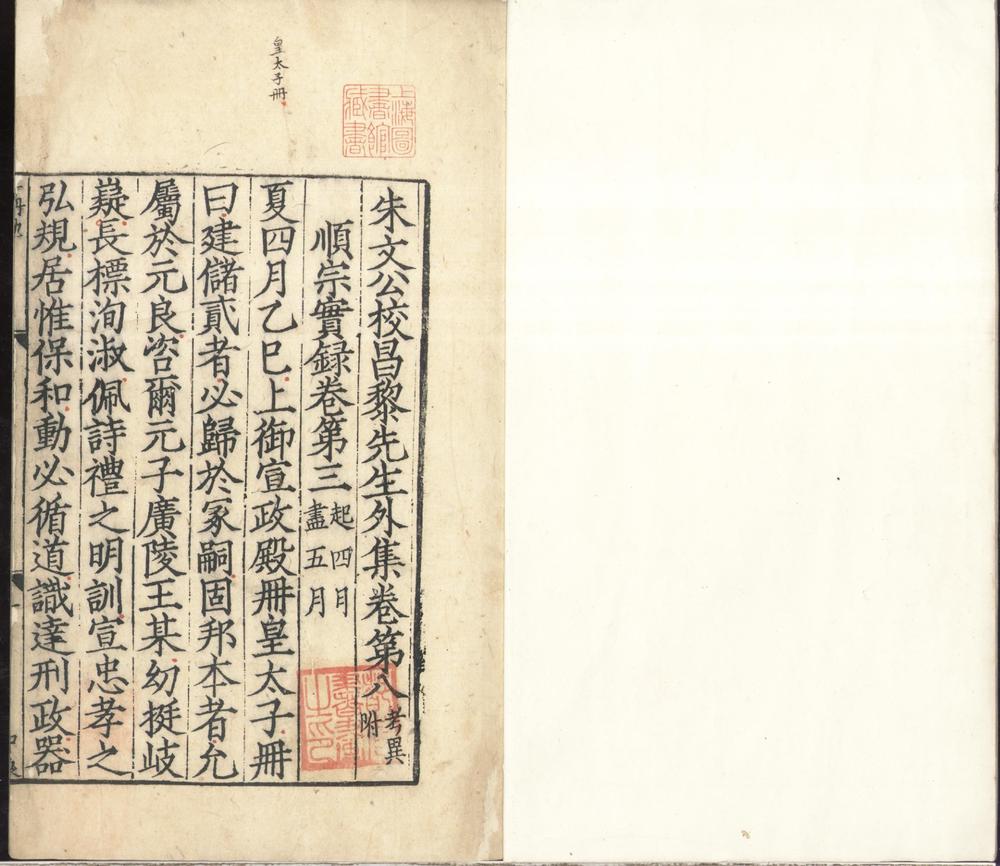 皇太子冊
上海圖書館藏書
朱文公校昌黎先生外集卷第八考異附
順宗實録卷第三起四月盡五月
夏四月乙巳上御宣政殿冊皇太子冊
曰建儲貳者必歸於冢嗣固邦本者允
屬於元良咨爾元子廣陵王某幼挺岐
嶷長標洵淑佩詩禮之明訓宣忠孝之
弘規居惟保和動必循道識達刑政器